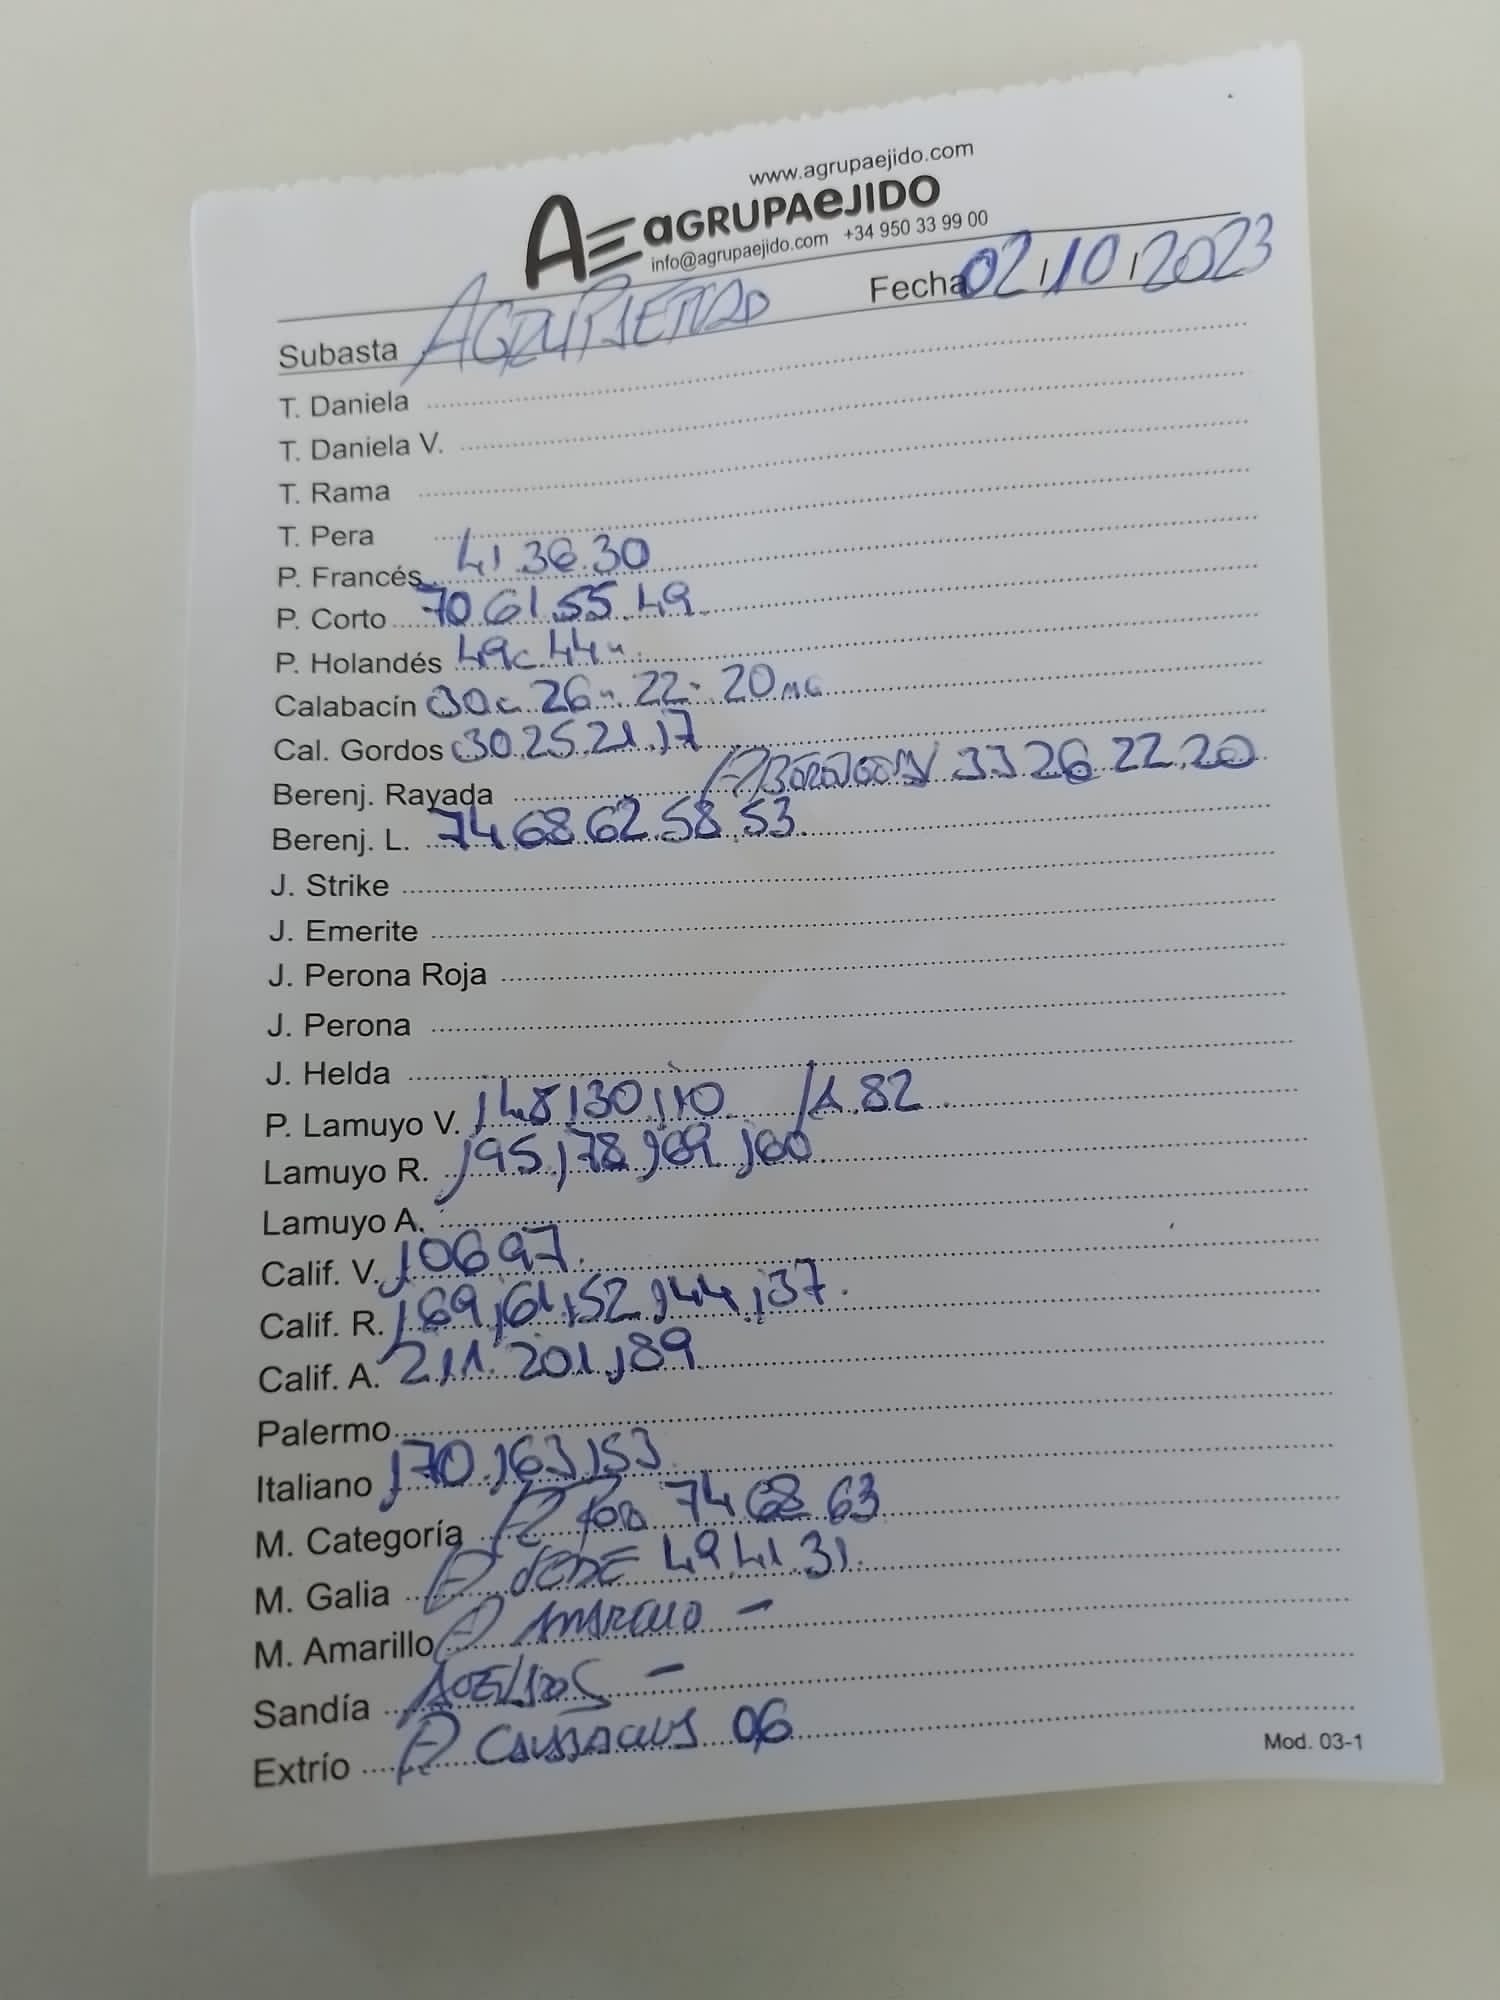 www.agrupaejido.com
AE aGRUPAeJIDO
info@agrupaejido.com +34 950 33 99 00
Subasta AGRUPAEJIDO Fecha 02/10/2023
T. Daniela
T. Daniela V.
T. Rama
T. Pera
P. Francés 41.36.30
P. Corto 70 61.55.49
P. Holandés 49c 44"
Calabacín 30c 26". 22". 20 MG
Cal. Gordos 30.25.21.17
Berenj. Rayada 33 26 22.20
Berenj. L. 74.68.62.58.53.
J. Strike
J. Emerite
J. Perona Roja
J. Perona
J. Helda
P. Lamuyo V. 148,130,110 /A.82
Lamuyo R. 195,178,169,160
Lamuyo A.
Calif. V. 106 97.
Calif. R. 169,161,152,144,137.
Calif. A. 211.201,189
Palermo
Italiano 170.163,153
M. Categoría P. 74 68 63
M. Galia P. 49.41.31.
M. Amarillo P. AMARILLO -
Sandía -
Extrío P. 06
Mod. 03-1